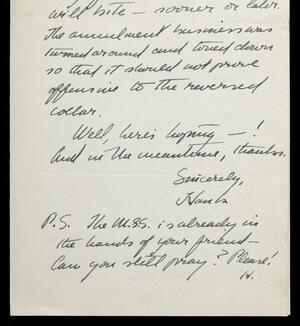 will bite – sooner or later.
The annulment business was
turned around and toned down
so that it should not prove
offensive to the reversed
collar.
Well, here's hoping – !
And in the meantime, thanks.
Sincerely,
Hank
P.S. The M.SS. is already in
the hands of your friend –
Can you still pray? Please!
H.